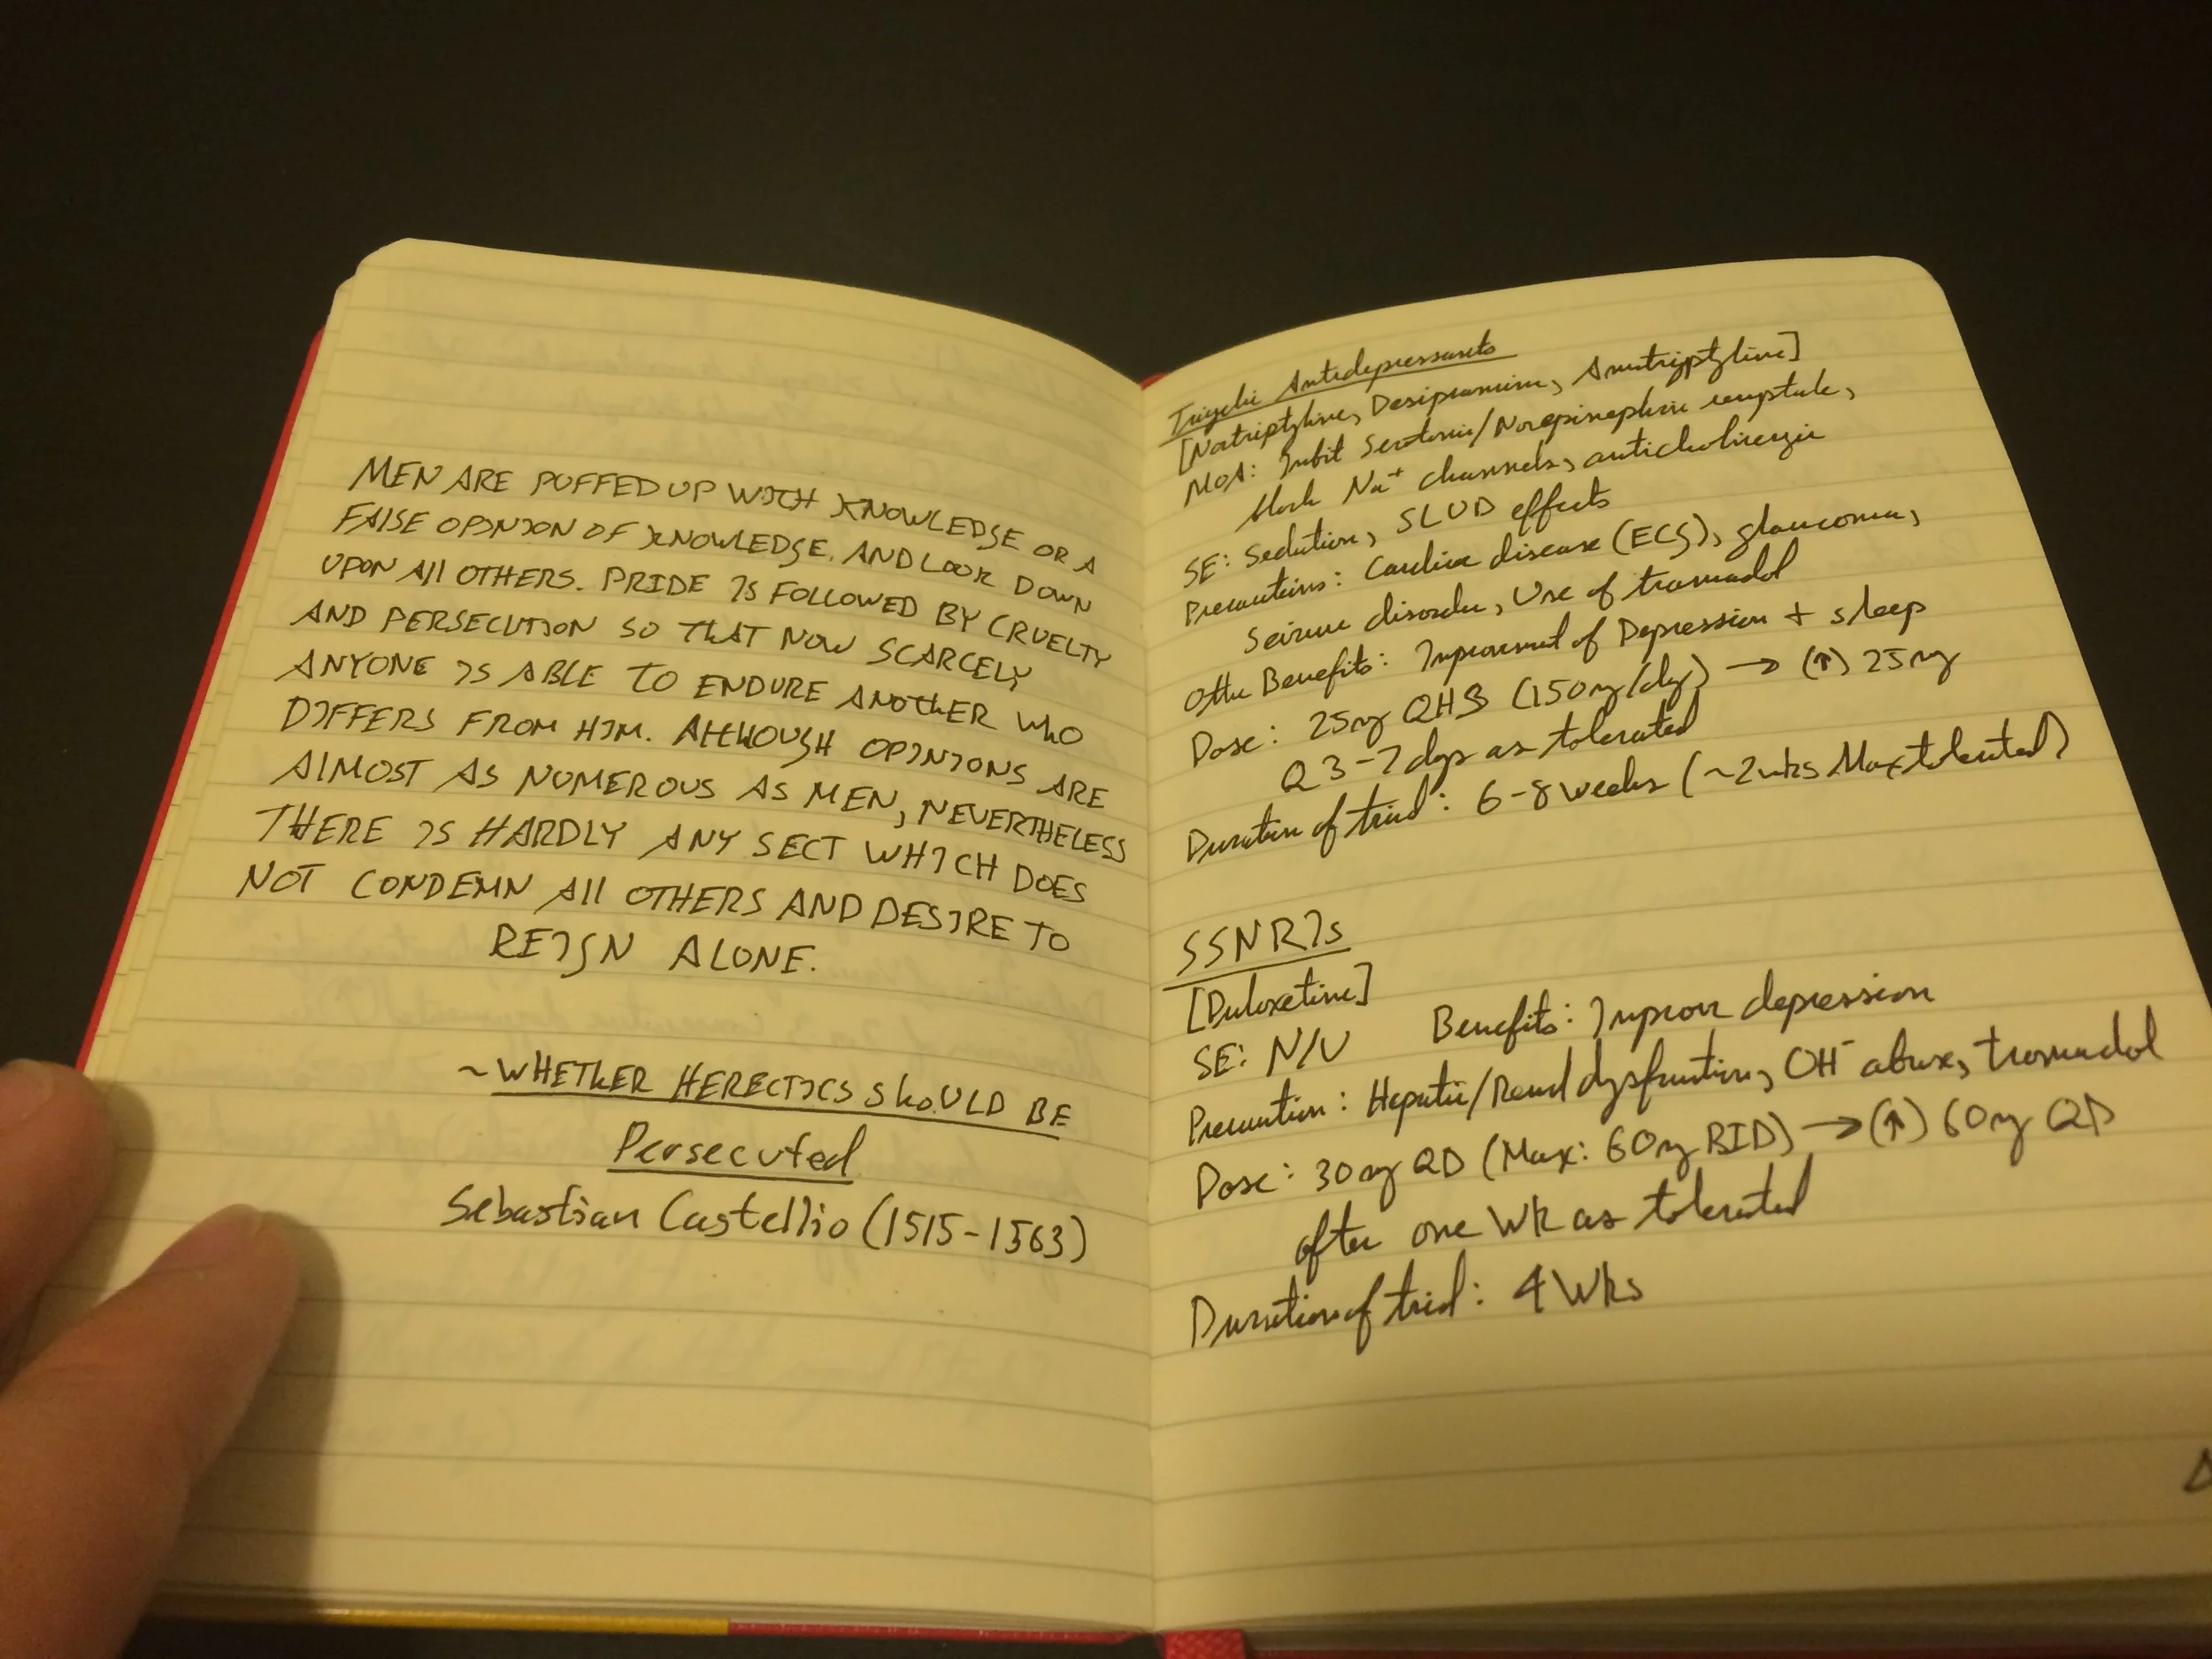 MEN ARE PUFFED UP WITH KNOWLEDGE OR A
FALSE OPINION OF KNOWLEDGE, AND LOOK DOWN
UPON All OTHERS. PRIDE IS FOLLOWED BY CRUELTY
AND PERSECUTION SO THAT NOW SCARCELY
ANYONE IS ABLE TO ENDURE ANOTHER WHO
DIFFERS FROM HIM. ALTHOUGH OPINIONS ARE
ALMOST AS NUMEROUS AS MEN, NEVERTHELESS
THERE IS HARDLY ANY SECT WHICH DOES
NOT CONDEMN All OTHERS AND DESIRE TO
REIGN ALONE.
~ WHETHER HERECTICS ShOULD BE
Persecuted
Sebastian Castellio (1515-1563)
Tricyclic Antidepressants
[Nortriptyline, Desipramine, Amitriptyline]
MOA: Inhibit Serotonin/Norepinephrine reuptake,
block Na+ channels, anticholinergic
SE: Sedation, SLUD effects
Precautions: Cardiac disease (ECG), glaucoma,
Seizure disorder, Use of tramadol
Other Benefits: Improvement of Depression + sleep
Dose: 25mg QHS (150mg/day) → (↑) 25mg
Q 3-7 days as tolerated
Duration of trial: 6-8 weeks (~2wks Max tolerated)
SSNRIs
[Duloxetine]
SE: N/V Benefits: Improve depression
Precaution: Hepatic/Renal dysfunction, OH- abuse, tramadol
Dose: 30mg QD (Max: 60mg BID) → (↑) 60mg QD
after one Wk as tolerated
Duration of trial: 4 Wks